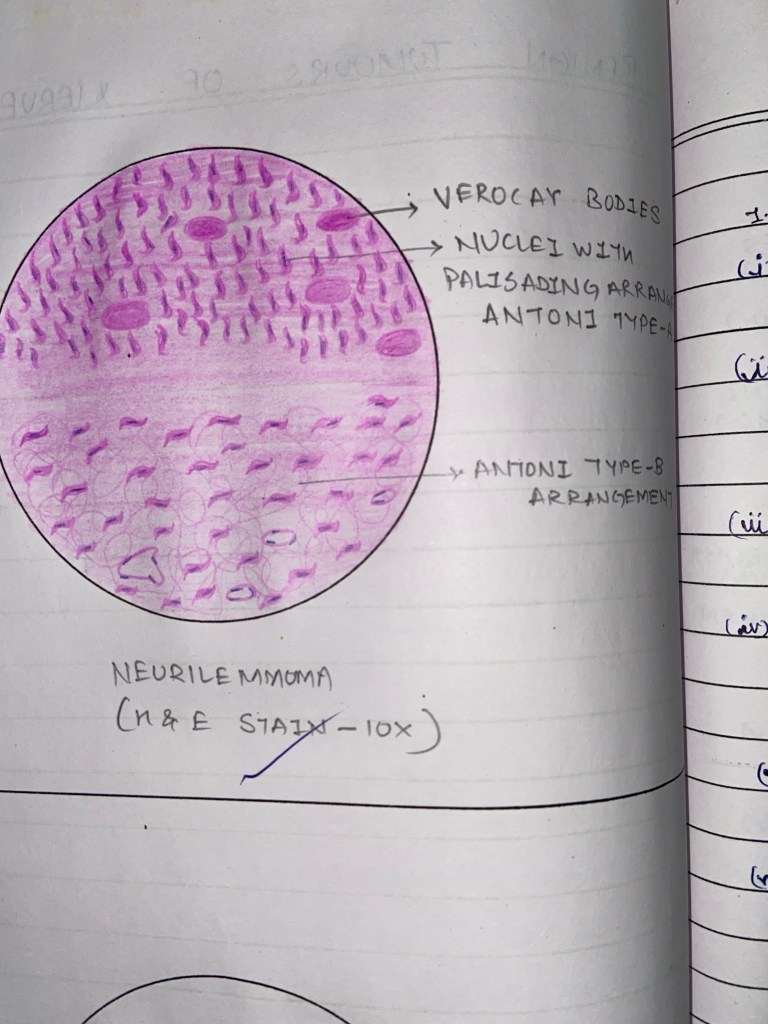 VEROCAY BODIES
NUCLEI WITH
PALISADING ARRANG
ANTONI TYPE-A
ANTONI TYPE-B
ARRANGEMENT
NEURILEMMOMA
(H & E STAIN - 10X)
(i)
(ii)
(iii)
(iv)